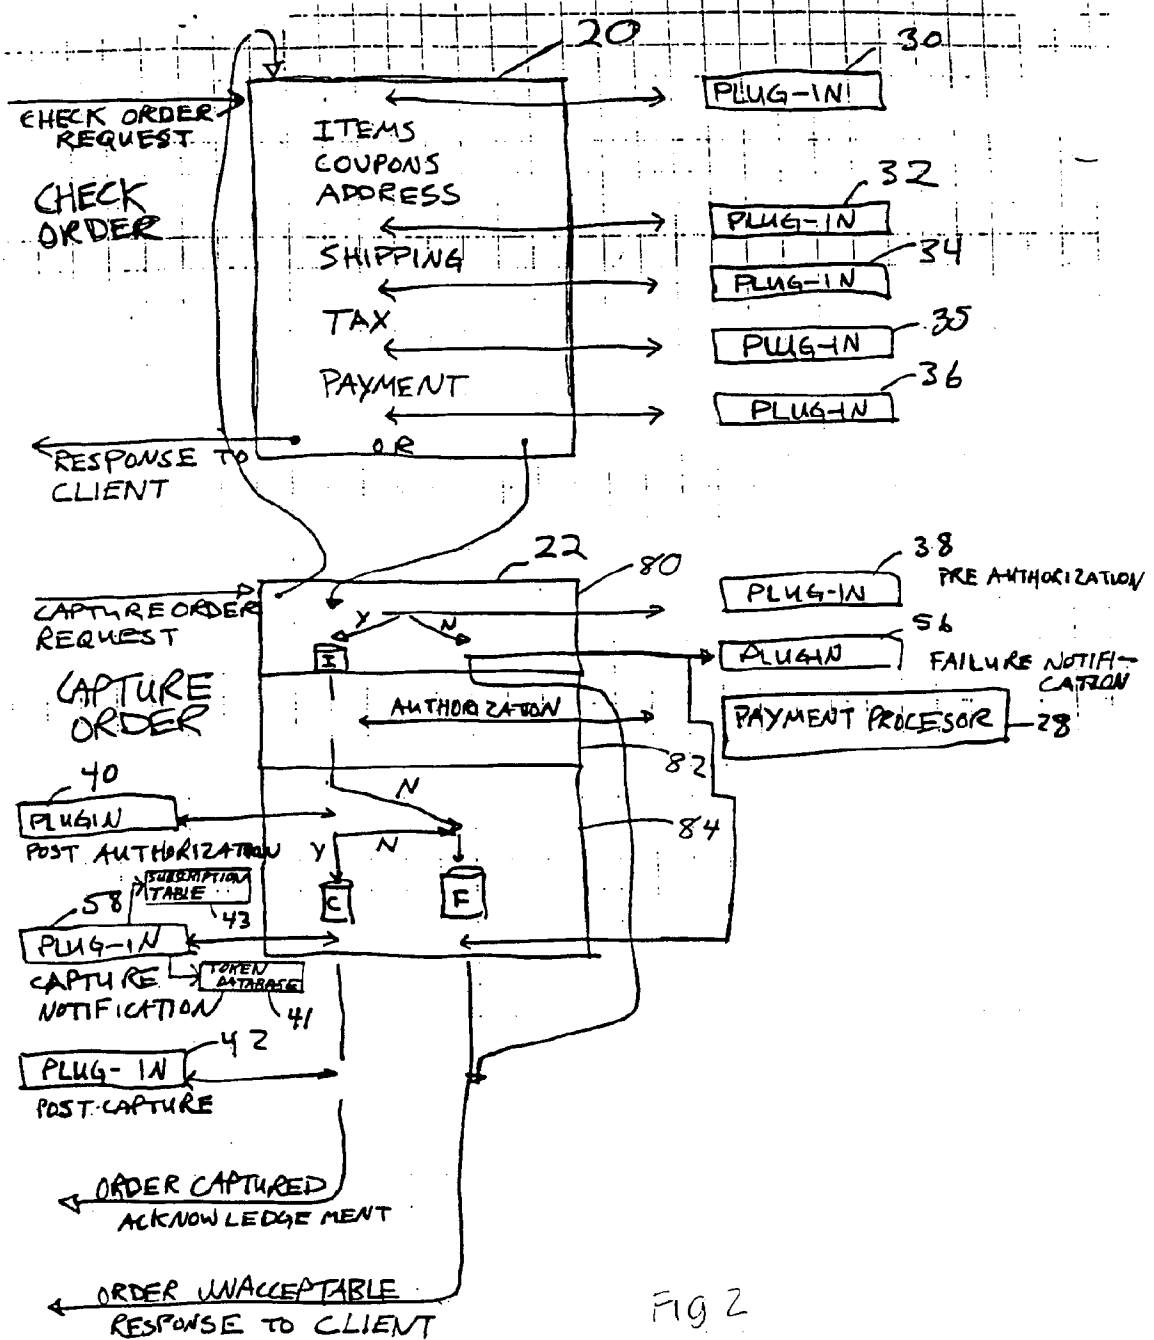 20
30
PLUG-IN
CHECK ORDER
REQUEST
ITEMS
COUPONS
ADDRESS
CHECK
ORDER
32
PLUG-IN
SHIPPING
34
PLUG-IN
TAX
35
PLUG-IN
PAYMENT
36
PLUG-IN
OR
RESPONSE TO
CLIENT
22
80
38
PLUG-IN
PRE AUTHORIZATION
CAPTURE ORDER
REQUEST
Y
N
I
56
PLUGIN
FAILURE NOTIFI-
CATION
CAPTURE
ORDER
AUTHORIZATION
PAYMENT PROCESOR
28
82
40
PLUGIN
POST AUTHORIZATION
N
Y
N
84
C
F
SUBSCRIPTION
TABLE
58
43
PLUG-IN
CAPTURE
NOTIFICATION
TOKEN
DATABASE
41
42
PLUG-IN
POST-CAPTURE
ORDER CAPTURED
ACKNOWLEDGEMENT
ORDER UNACCEPTABLE
RESPONSE TO CLIENT
FIG 2